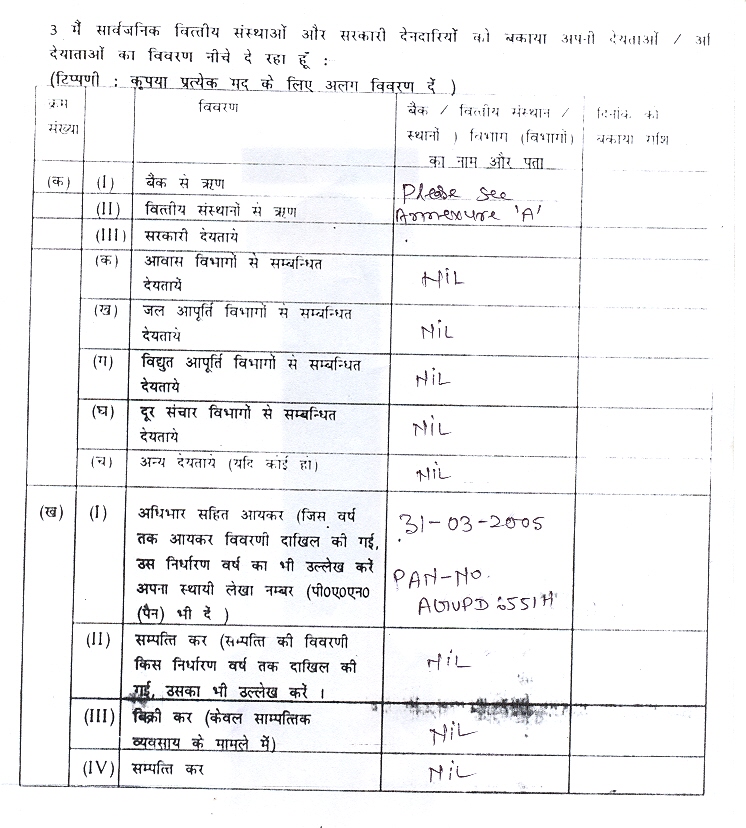 3 मैं सार्वजनिक वित्तीय संस्थाओं और सरकारी देनदारियों को बकाया अपनी देयताओं / अ
देयाताओं का विवरण नीचे दे रहा हूँ :
(टिप्पणी : कृपया प्रत्येक मद के लिए अलग विवरण दें )
क्रम संख्या विवरण बैक / वित्तीय संस्थान / दिनांक को
स्थानों ) विभाग (विभागों) बकाया राशि
का नाम और पता
(क) (I) बैक से ऋण Please see
(II) वित्तीय संस्थानों से ऋण Annexure 'A'
(III) सरकारी देयताये
(क) आवास विभागों से सम्बन्धित
देयतायें NiL
(ख) जल आपूर्ति विभागों से सम्बन्धित
देयताये NiL
(ग) विद्युत आपूर्ति विभागों से सम्बन्धित
देयताये NiL
(घ) दूर संचार विभागों से सम्बन्धित
देयताये NiL
(च) अन्य देयताये (यदि कोई हो) NiL
(ख) (I) अधिभार सहित आयकर (जिस वर्ष 31-03-2005
तक आयकर विवरणी दाखिल की गई,
उस निर्धारण वर्ष का भी उल्लेख करें
अपना स्थायी लेखा नम्बर (पी०ए०एन० PAN-NO.
(पैन) भी दें )
(II) सम्पत्ति कर (सम्पत्ति की विवरणी
किस निर्धारण वर्ष तक दाखिल की NiL
गई, उसका भी उल्लेख करें ।
(III) बिक्री कर (केवल साम्पत्तिक
व्यवसाय के मामले में) NiL
(IV) सम्पत्ति कर NiL